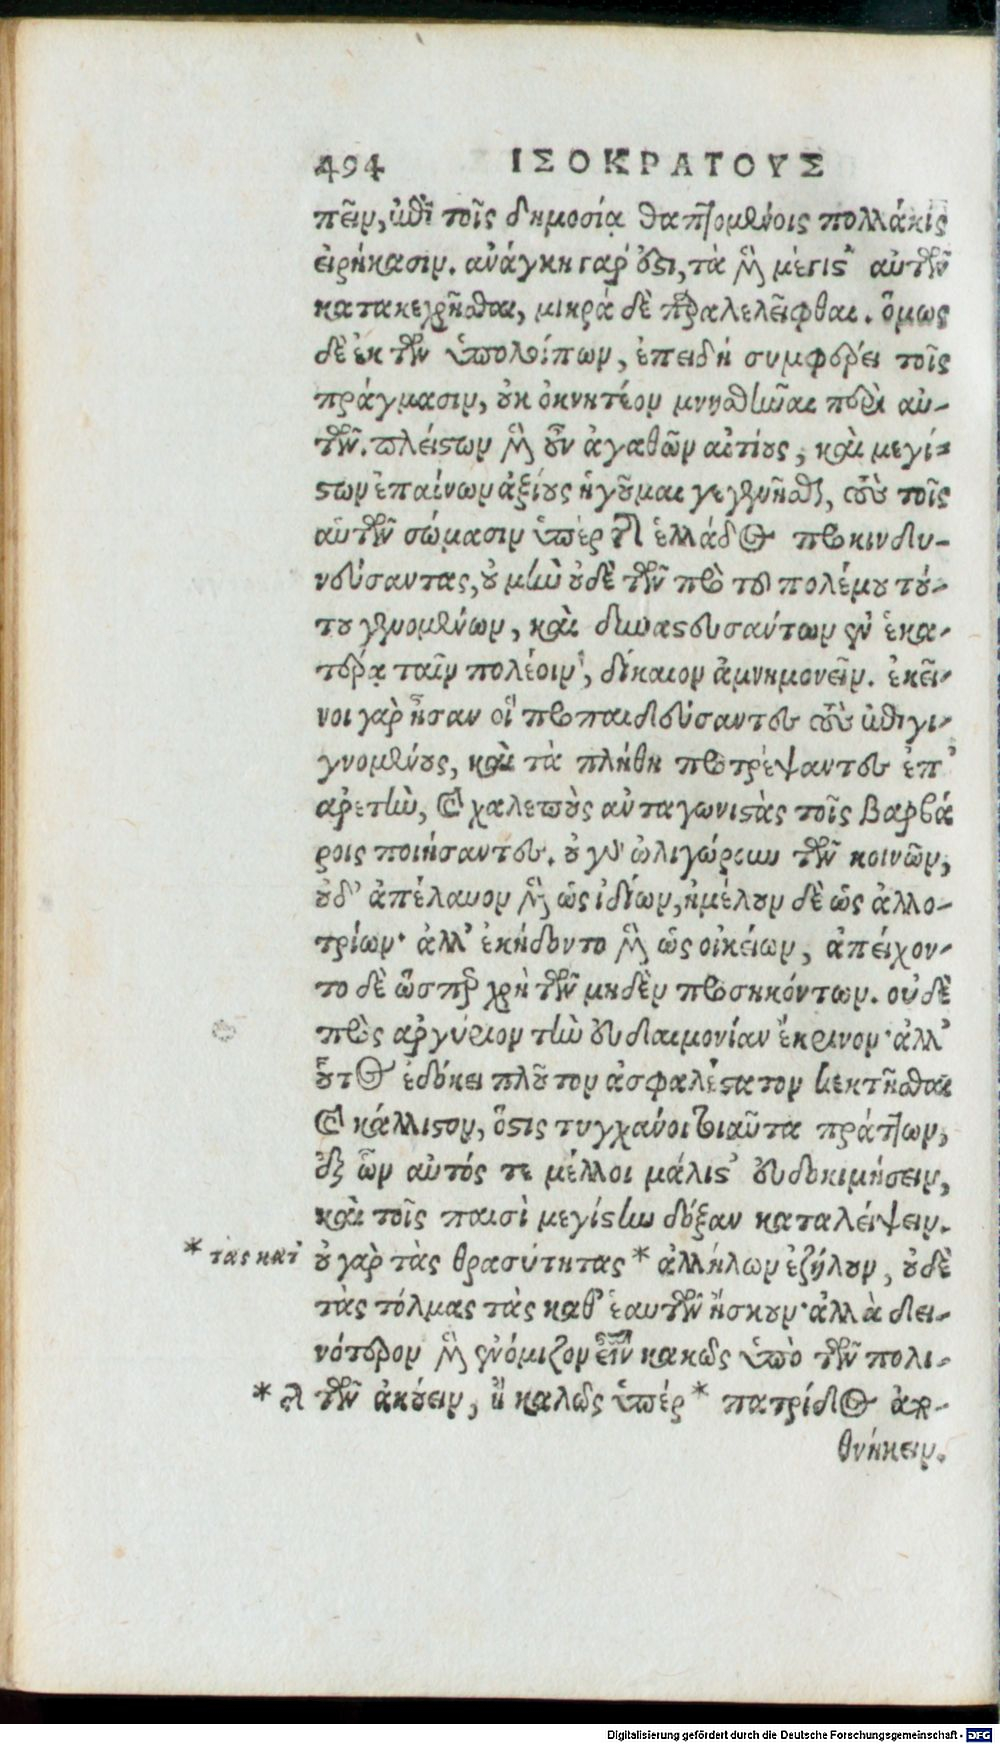 494 ΙΣΟΚΡΑΤΟΥΣ
πεῖν, ἐπὶ τοῖς δημοσίᾳ θαπτομένοις πολλάκις
εἰρήκασιν. ἀνάγκη γάρ ἐστι, τὰ μὲν μέγιστ' αὐτῶν
κατακεχρῆσθαι, μικρὰ δὲ παραλελεῖφθαι. ὅμως
δὲ ἐκ τῶν ὑπολοίπων, ἐπειδὴ συμφέρει τοῖς
πράγμασιν, οὐκ ὀκνητέον μνησθῆναι περὶ αὐ-
τῶν. πλείστων μὲν οὖν ἀγαθῶν αἰτίους, καὶ μεγί-
στων ἐπαίνων ἀξίους ἡγοῦμαι γεγενῆσθαι, τοὺς τοῖς
αὑτῶν σώμασιν ὑπὲρ τῆς ἑλλάδος προκινδυ-
νεύσαντας, οὐ μὴν οὐδὲ τῶν πρὸ τοῦ πολέμου τού-
του γενομένων, καὶ δυναστευσάντων ἐν ἑκα-
τέρᾳ ταῖν πολέοιν, δίκαιον ἀμνημονεῖν. ἐκεῖ-
νοι γὰρ ἦσαν οἱ προπαιδεύσαντες τοὺς ἐπιγι-
γνομένους, καὶ τὰ πλήθη προτρέψαντες ἐπ'
ἀρετὴν, καὶ χαλεποὺς ἀνταγωνιστὰς τοῖς βαρβά
ροις ποιήσαντες. οὐ γὰρ ὠλιγώρουν τῶν κοινῶν,
οὐδ' ἀπέλαυον μὲν ὡς ἰδίων, ἠμέλουν δὲ ὡς ἀλλο-
τρίων· ἀλλ' ἐκήδοντο μὲν ὡς οἰκείων, ἀπείχον-
το δὲ ὥσπερ χρὴ τῶν μηδὲν προσηκόντων. οὐδὲ
πρὸς ἀργύριον τὴν εὐδαιμονίαν ἔκρινον· ἀλλ'
οὗτος ἐδόκει πλοῦτον ἀσφαλέστατον κεκτῆσθαι
καὶ κάλλιστον, ὅστις τυγχάνοι τοιαῦτα πράττων,
ἐξ ὧν αὐτός τε μέλλοι μάλιστ' εὐδοκιμήσειν,
καὶ τοῖς παισὶ μεγίστην δόξαν καταλείψειν.
* τὰς κατ' οὐ γὰρ τὰς θρασύτητας * ἀλλήλων ἐζήλουν, οὐδὲ
τὰς τόλμας τὰς καθ' ἑαυτῶν ἤσκουν· ἀλλὰ δει-
νότερον μὲν ἐνόμιζον εἶναι κακῶς ὑπὸ τῶν πολι-
* τῶν ἀκούειν, ἢ καλῶς ὑπὲρ * πατρίδος ἀπο-
θνήκειν.
Digitalisierung gefördert durch die Deutsche Forschungsgemeinschaft - DFG